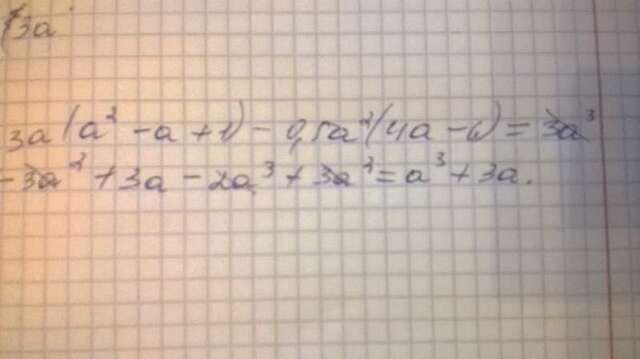 (3a
3a(a² - a + 1) - 0,5a²(4a - 6) = 3a³
- 3a² + 3a - 2a³ + 3a² = a³ + 3a.